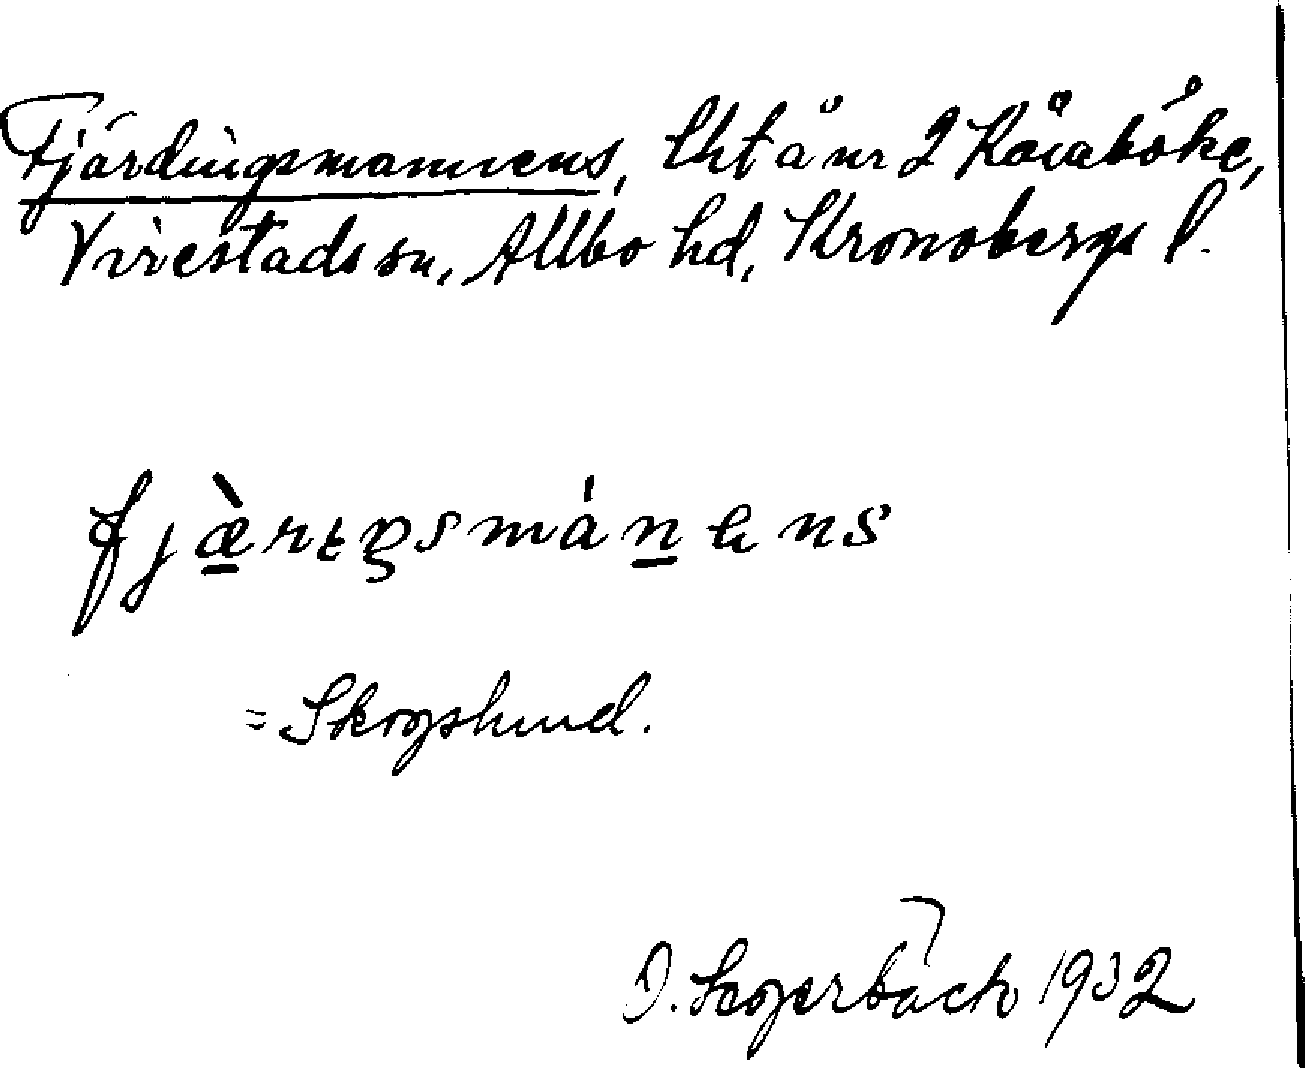 Fjärdingsmannens, lht å nr 2 Råaböke,
Virestads sn, Allbo hd, Kronobergs l.
fjæ̀rɩŋsmánens
= Skogslund.
D. Segerbäck 1932